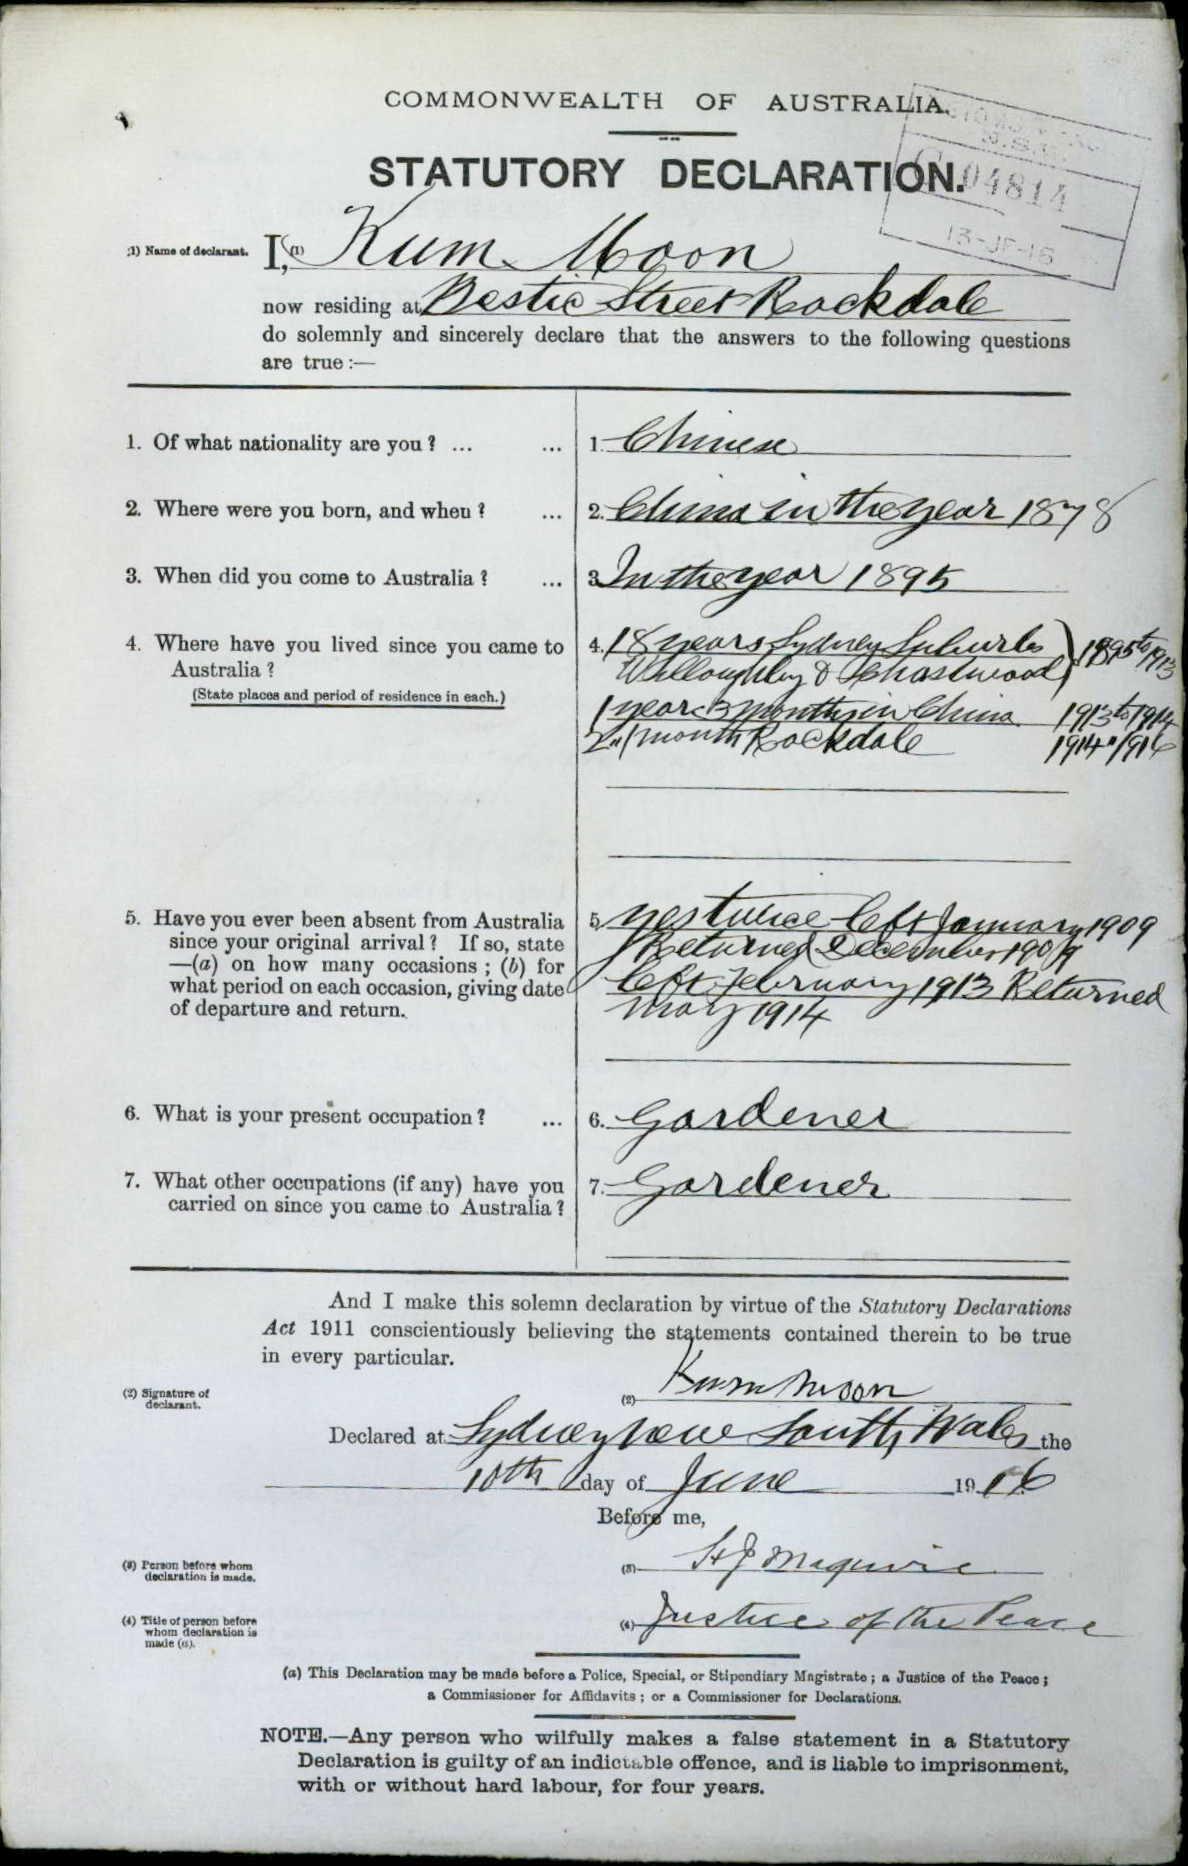 COMMONWEALTH OF AUSTRALIA.
STATUTORY DECLARATION.
N.S.W.
C 04814
13-JE-16
(1) Name of declarant. I, (1) Kum Moon
now residing at Bestic Street Rockdale
do solemnly and sincerely declare that the answers to the following questions
are true:—
1. Of what nationality are you? ... ... 1. Chinese
2. Where were you born, and when? ... 2. China in the year 1878
3. When did you come to Australia? ... 3. In the year 1895
4. Where have you lived since you came to 4. 18 years Sydney Suburbs } 1895 to 1913
Australia? Willoughby & Chastwood
(State places and period of residence in each.) 1 year 3 months in China 1913 to 1914
2 " 1 month Rockdale 1914 " 1916
5. Have you ever been absent from Australia 5. yes twice left January 1909
since your original arrival? If so, state Returned December 1909
—(a) on how many occasions; (b) for left February 1913 Returned
what period on each occasion, giving date May 1914
of departure and return.
6. What is your present occupation? ... 6. Gardener
7. What other occupations (if any) have you 7. Gardener
carried on since you came to Australia?
And I make this solemn declaration by virtue of the Statutory Declarations
Act 1911 conscientiously believing the statements contained therein to be true
in every particular.
(2) Signature of (2) Kum Moon
declarant.
Declared at Sydney New South Wales the
10th day of June 1916
Before me,
(3) Person before whom (3) H J Maguire
declaration is made.
(4) Title of person before (4) Justice of the Peace
whom declaration is
made (a).
(a) This Declaration may be made before a Police, Special, or Stipendiary Magistrate; a Justice of the Peace;
a Commissioner for Affidavits; or a Commissioner for Declarations.
NOTE.—Any person who wilfully makes a false statement in a Statutory
Declaration is guilty of an indictable offence, and is liable to imprisonment,
with or without hard labour, for four years.